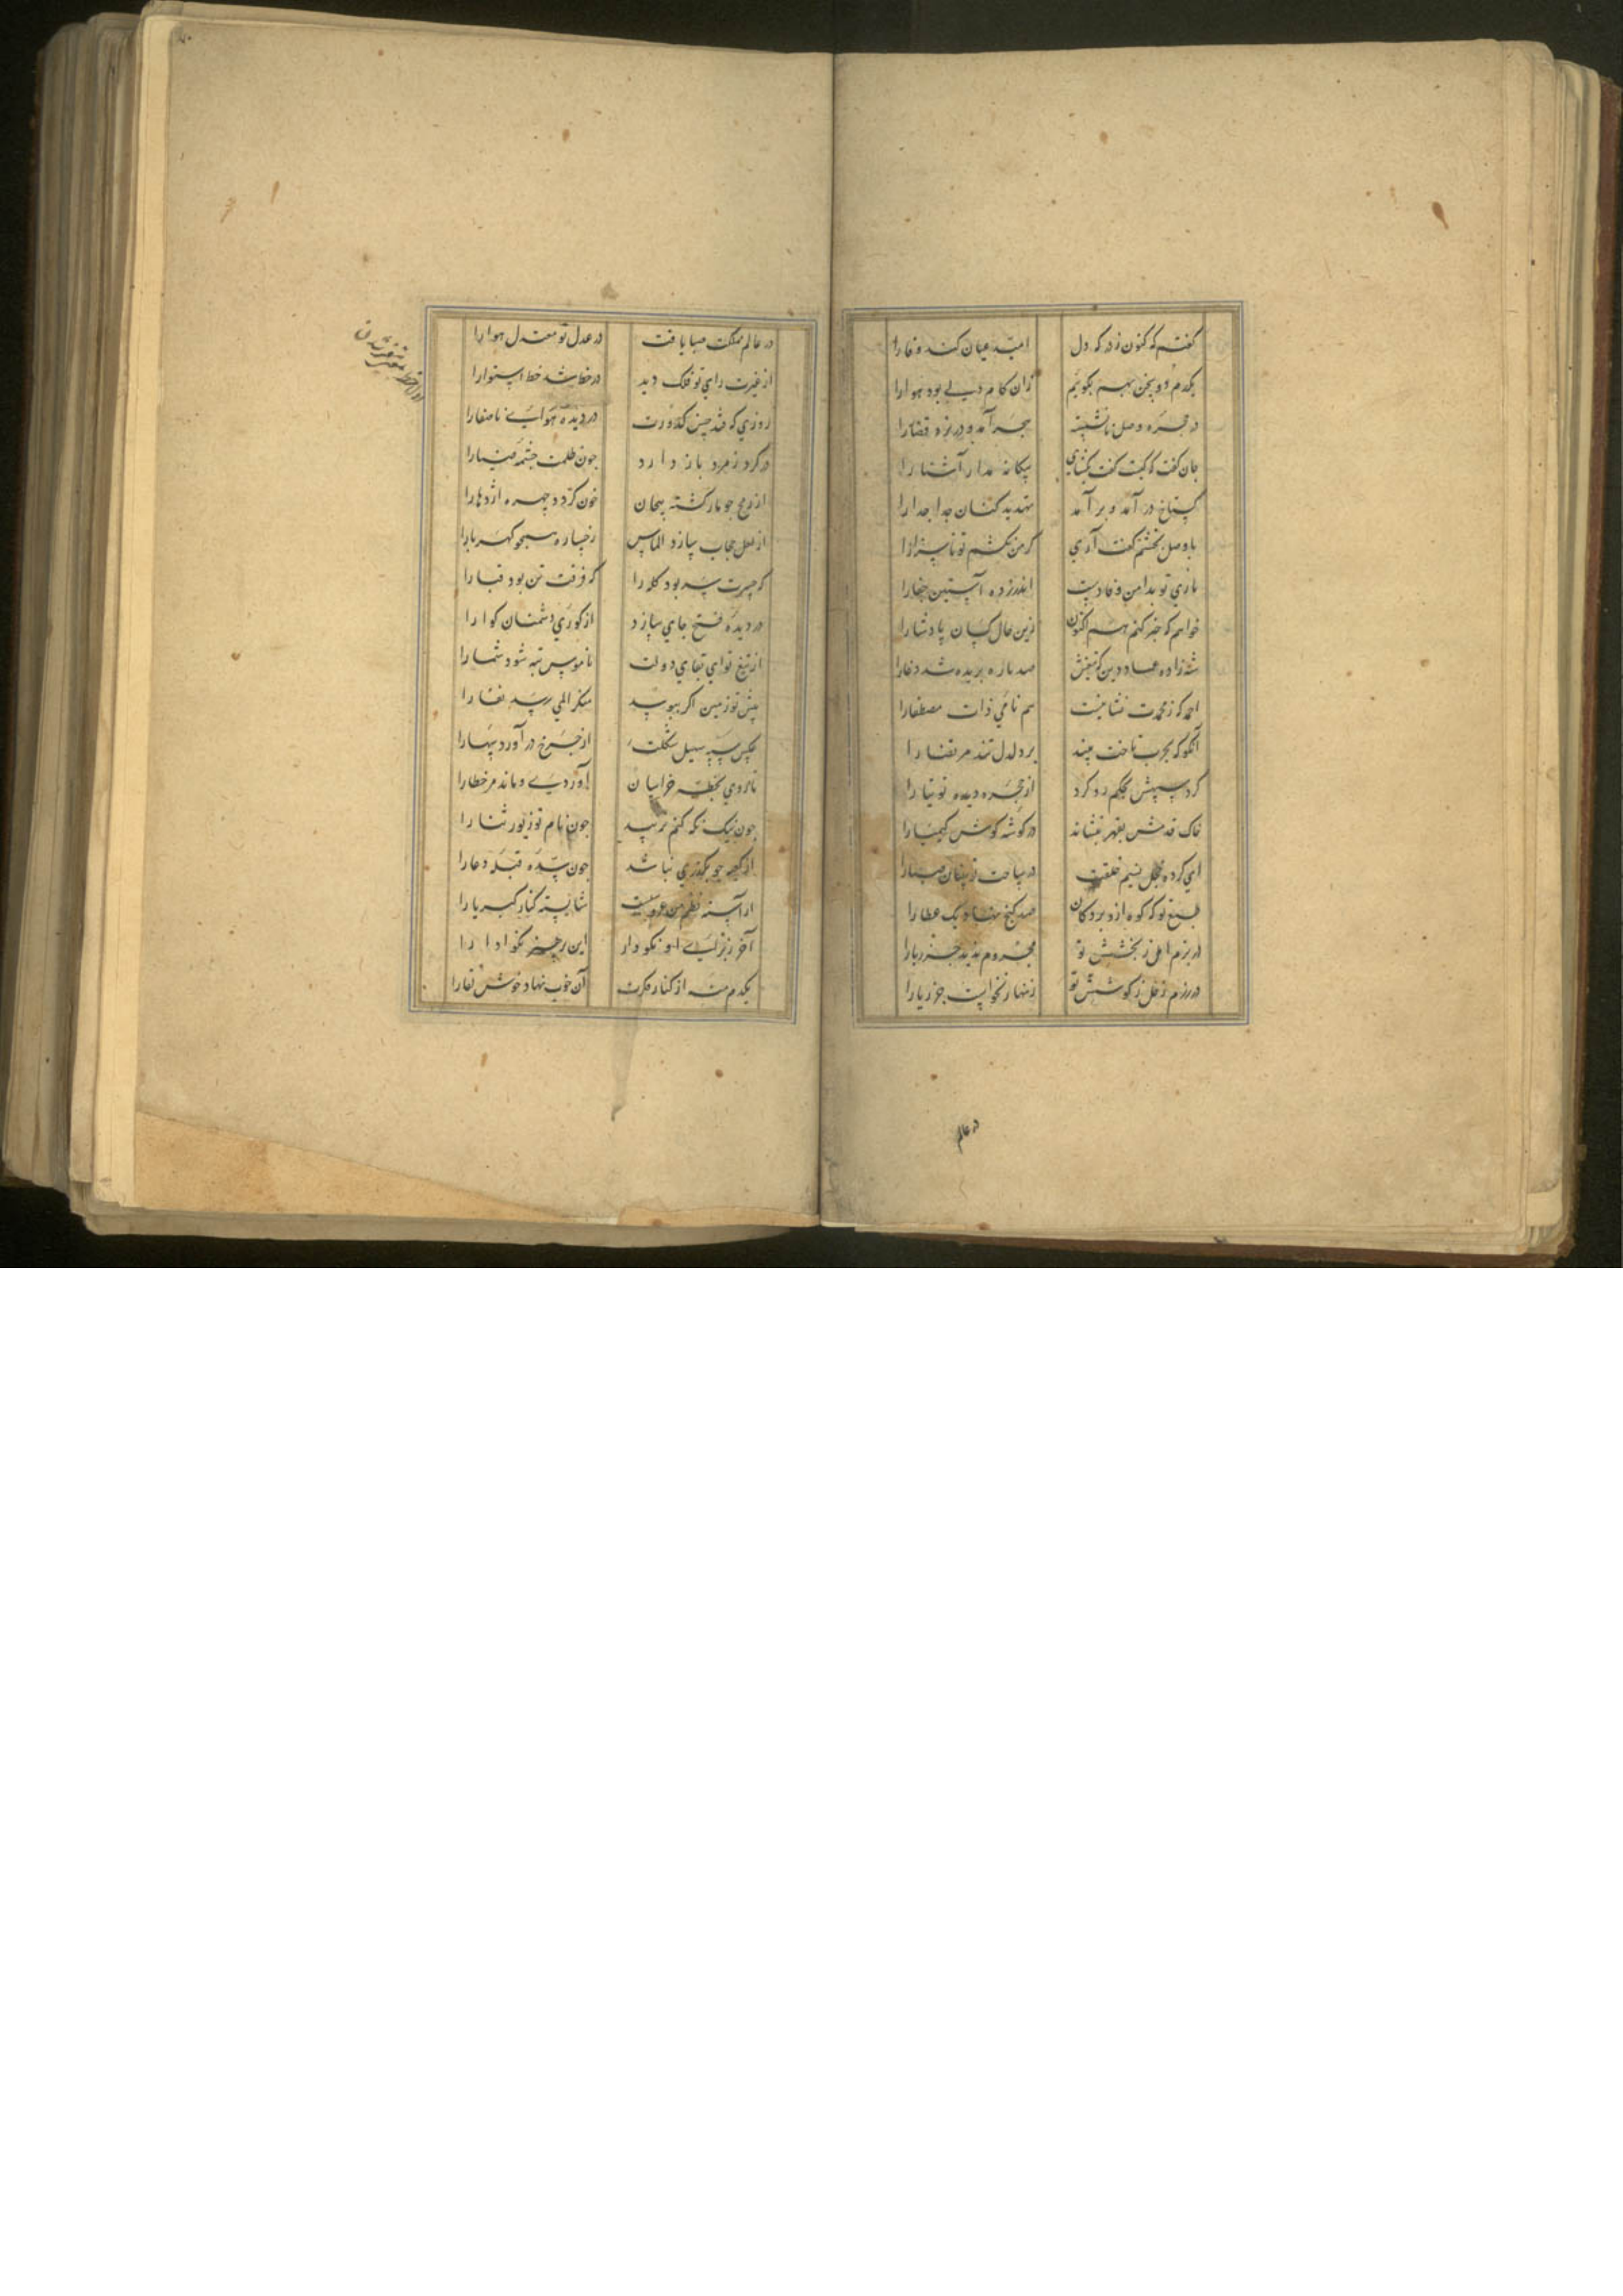 گفتم که کنون زد که دل امید عیان کند وفا را
یکدم دو سخن بهم بگوئیم زان کام دلی بود هوا را
در حجره وصل نانشسته هجر آمد و در بزد قضا را
جان گفت که کیست گفت بگشای بیگانه مدار آشنا را
گستاخ در آمد و بر آمد تهدید کنان جدا جدا را
با وصل بخشم گفت آری گر من نکشم تو ناسزا را
باری تو بدامن وفا دست اندر زده آستین جفا را
خواهم که خبر کنم هم اکنون زین حال کسان پادشا را
شه زاده عماد دین که تیغش صد باره بریده شد دغا را
احمد که ز محمدت نشانیست هم نامی ذات مصطفا را
آنکو که بحرب تاخت بیند بر دلدل تند مرتضا را
گرد سپهش بحکم رد کرد از حجره دیده توتیا را
خاک قدمش بقهر بنشاند در گوشه گوش کیمیا را
ای کرده خجل نسیم خلقت در ساحت زیستان صبا را
طبع تو که کوه ازو برد کان صد گنج نهاد یک عطا را
در بزم امل ز بخشش تو محروم ندید جز ریا را
در رزم اجل ز کوشش تو زنهار نخواست جز ریا را
در عالم
در عالم مملکت صبا یافت در عدل تو معتدل هوا را
از غیرت رای تو فلک دید در خط شده خط استوا را
روزی که فتد جبین کدورت در دیده هوای با صفا را
در گرد زمرد باز دارد چون ظلمت چشمه ضیا را
از رمح چو مار گشته پیچان خون گردد چهره اژدها را
از لعل حجاب سازد الماس رخساره همچو کهربا را
گر حسرت سر بود کله را گه فرقت تن بود قبا را
در دیده فتح جای سازد از کوری دشمنان گوا را
از تیغ تو ای بقای دولت ناموس تبه شود شما را
پیش تو زمین اگر ببوسد منکر المی رسد نفا را
عکس سپه سهیل شکلت از چرخ در آورد سها را
تا روی بخطه خراسان آوردی و ماند مر خطا را
چون نیک نگه کنم نرسید چون نام تو زیور ثنا را
از کعبه چو بگذری نباشد چون سده قبله دعا را
آراسته نظم من عروسیست شایسته کنار کبریا را
آخر ز برای او نکو دار این رجز نکو ادا را
یکدم منه از کنار فکرت آن خوب نهاد خوش لقا را